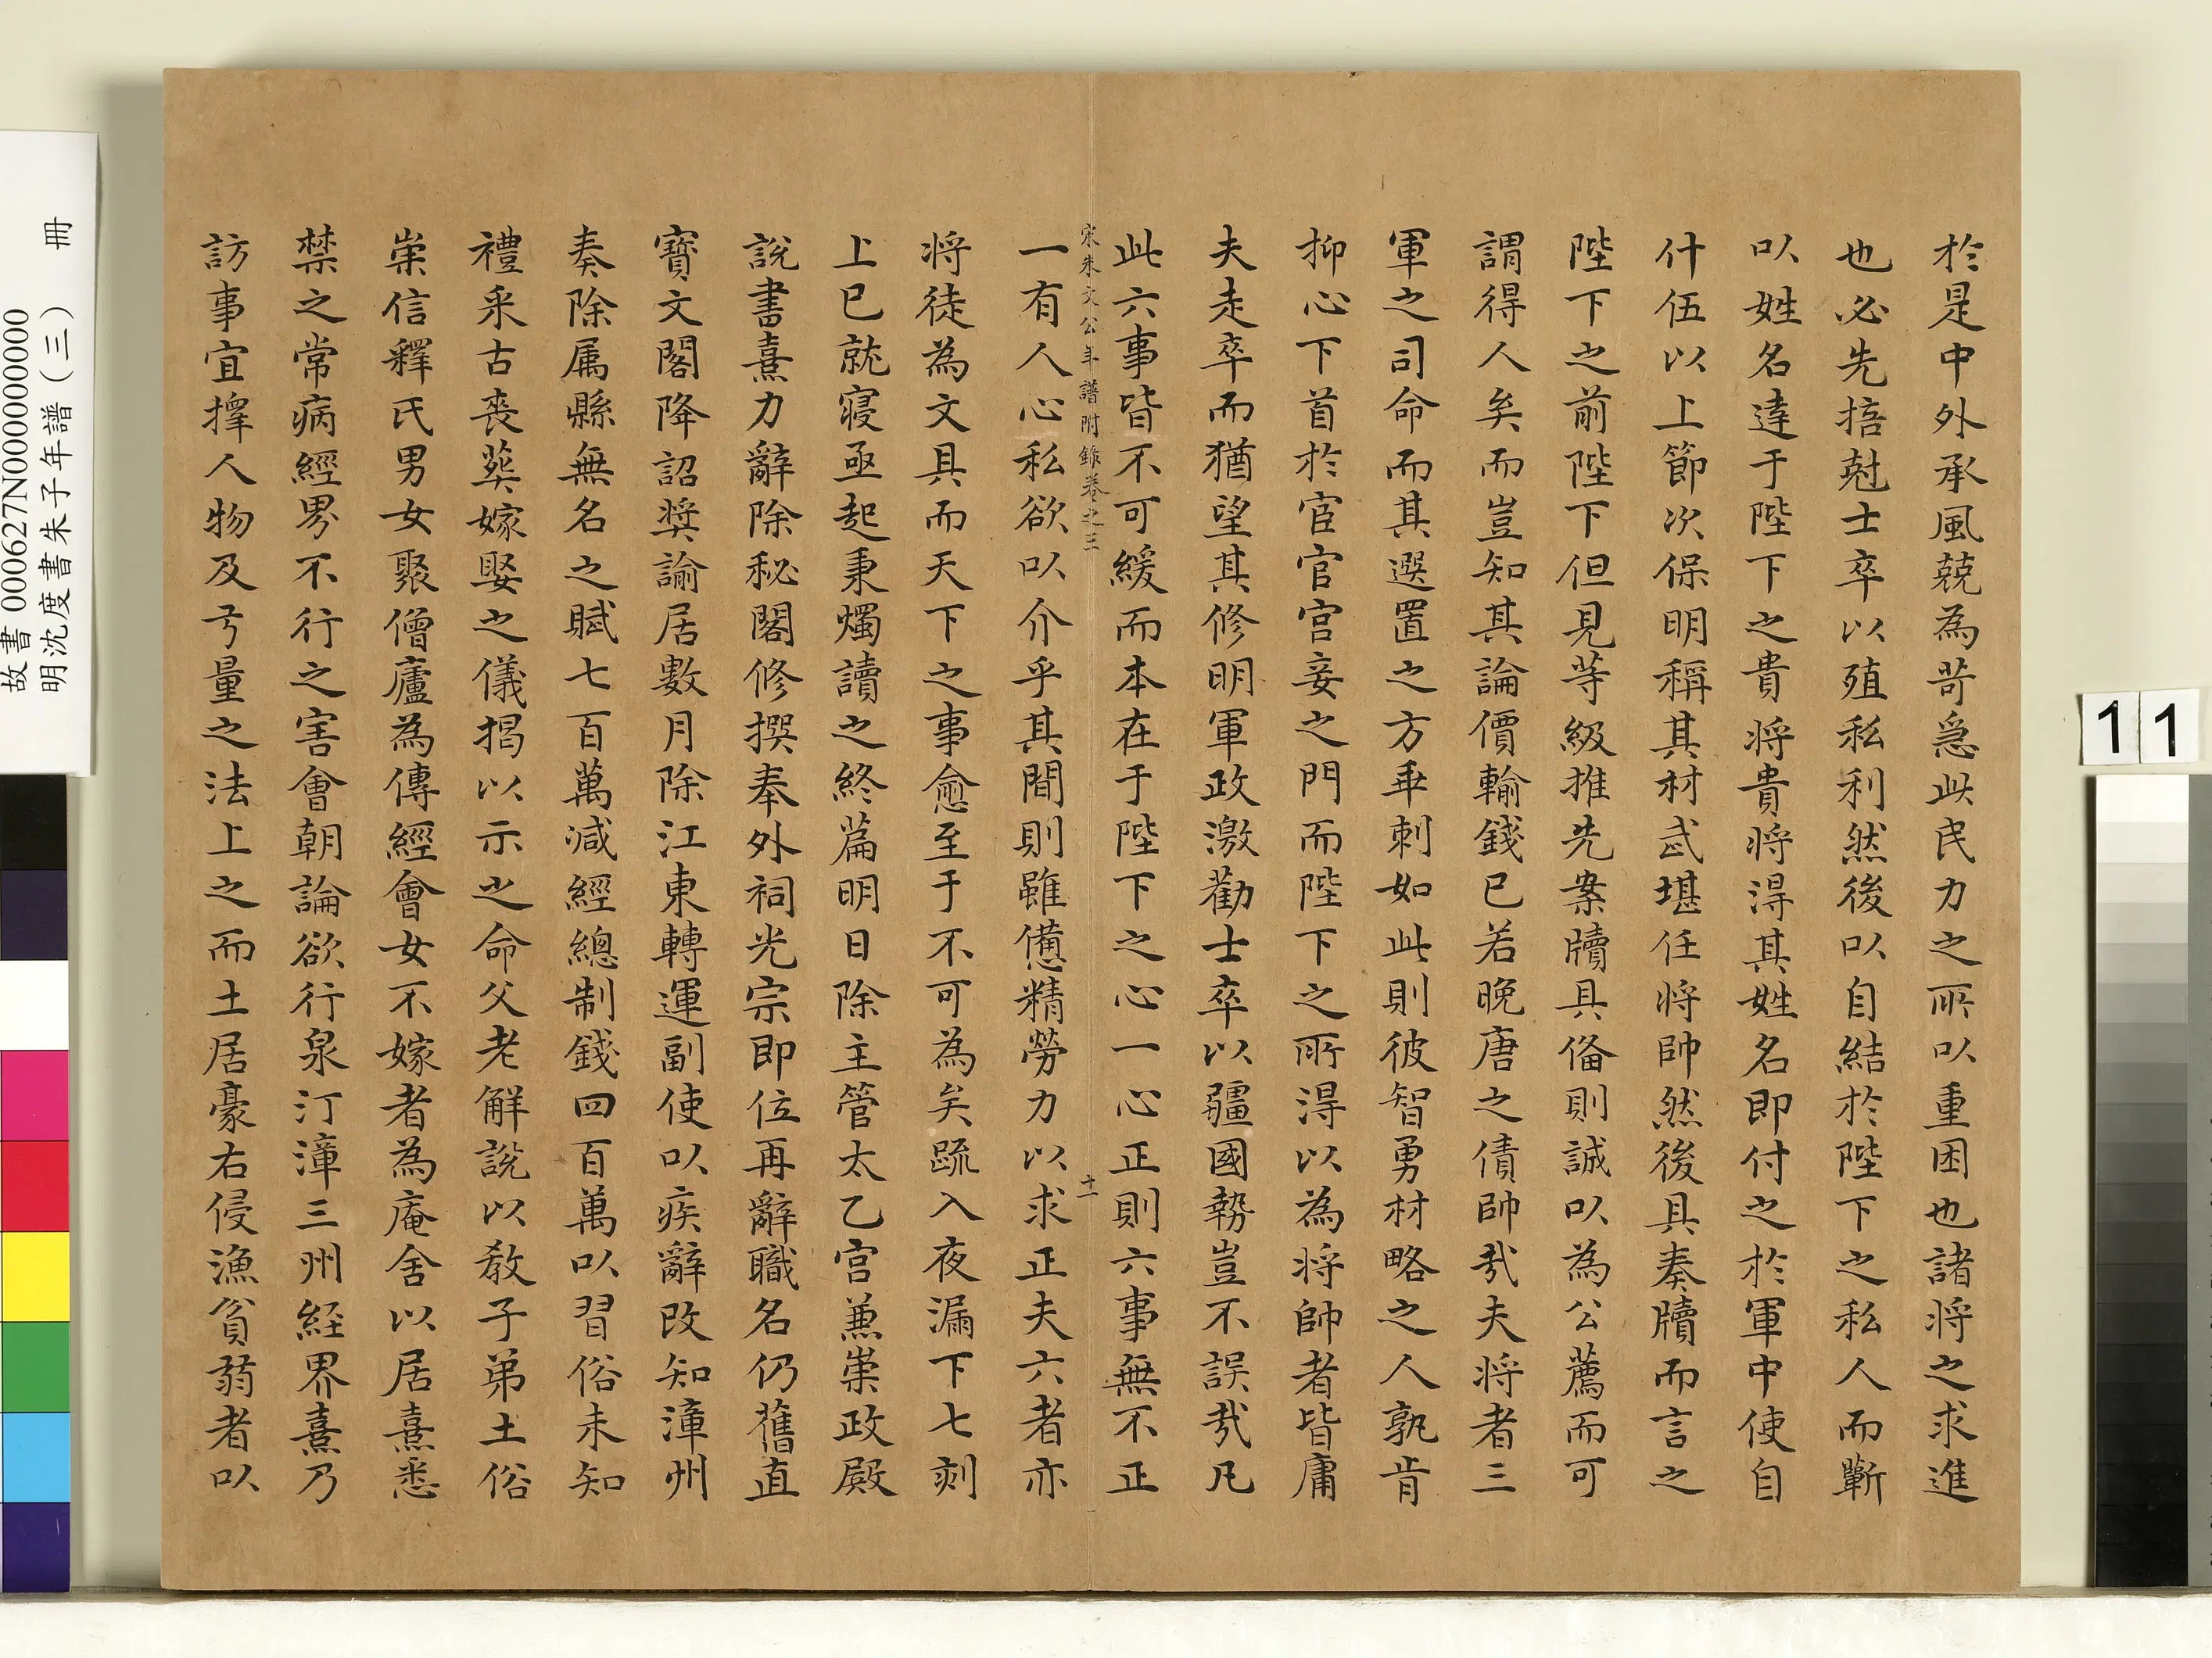 於是中外承風兢為苛急此民力之所以重困也諸將之求進
也必先掊尅士卒以殖私利然後以自結於陛下之私人而蘄
以姓名達于陛下之貴將貴將得其姓名即付之於軍中使自
什伍以上節次保明稱其材武堪任將帥然後具奏牘而言之
陛下之前陛下但見等級推先案牘具俻則誠以為公薦而可
謂得人矣而豈知其論價輸錢已若晚唐之債帥哉夫將者三
軍之司命而其選置之方乖剌如此則彼智勇材略之人孰肯
抑心下首於宦官宮妾之門而陛下之所得以為將帥者皆庸
夫走卒而猶望其修明軍政激勸士卒以疆國勢豈不誤哉凡
此六事皆不可緩而本在于陛下之心一心正則六事無不正
宋朱文公年譜附錄卷之三
十一
一有人心私欲以介乎其間則雖憊精勞力以求正夫六者亦
將徒為文具而天下之事愈至于不可為矣疏入夜漏下七刻
上已就寢亟起秉燭讀之終篇明日除主管太乙宮兼崇政殿
說書熹力辭除秘閣修撰奉外祠光宗即位再辭職名仍舊直
寶文閣降詔奬諭居數月除江東轉運副使以疾辭改知漳州
奏除属縣無名之賦七百萬減經總制錢四百萬以習俗未知
禮采古喪葬嫁娶之儀揭以示之命父老解說以教子弟土俗
崇信釋氏男女聚僧廬為傳經會女不嫁者為庵舍以居熹悉
禁之常病經界不行之害會朝論欲行泉汀漳三州経界熹乃
訪事宜擇人物及方量之法上之而土居豪右侵漁貧弱者以
故書 000627N000000000
明沈度書朱子年譜（三） 冊
11